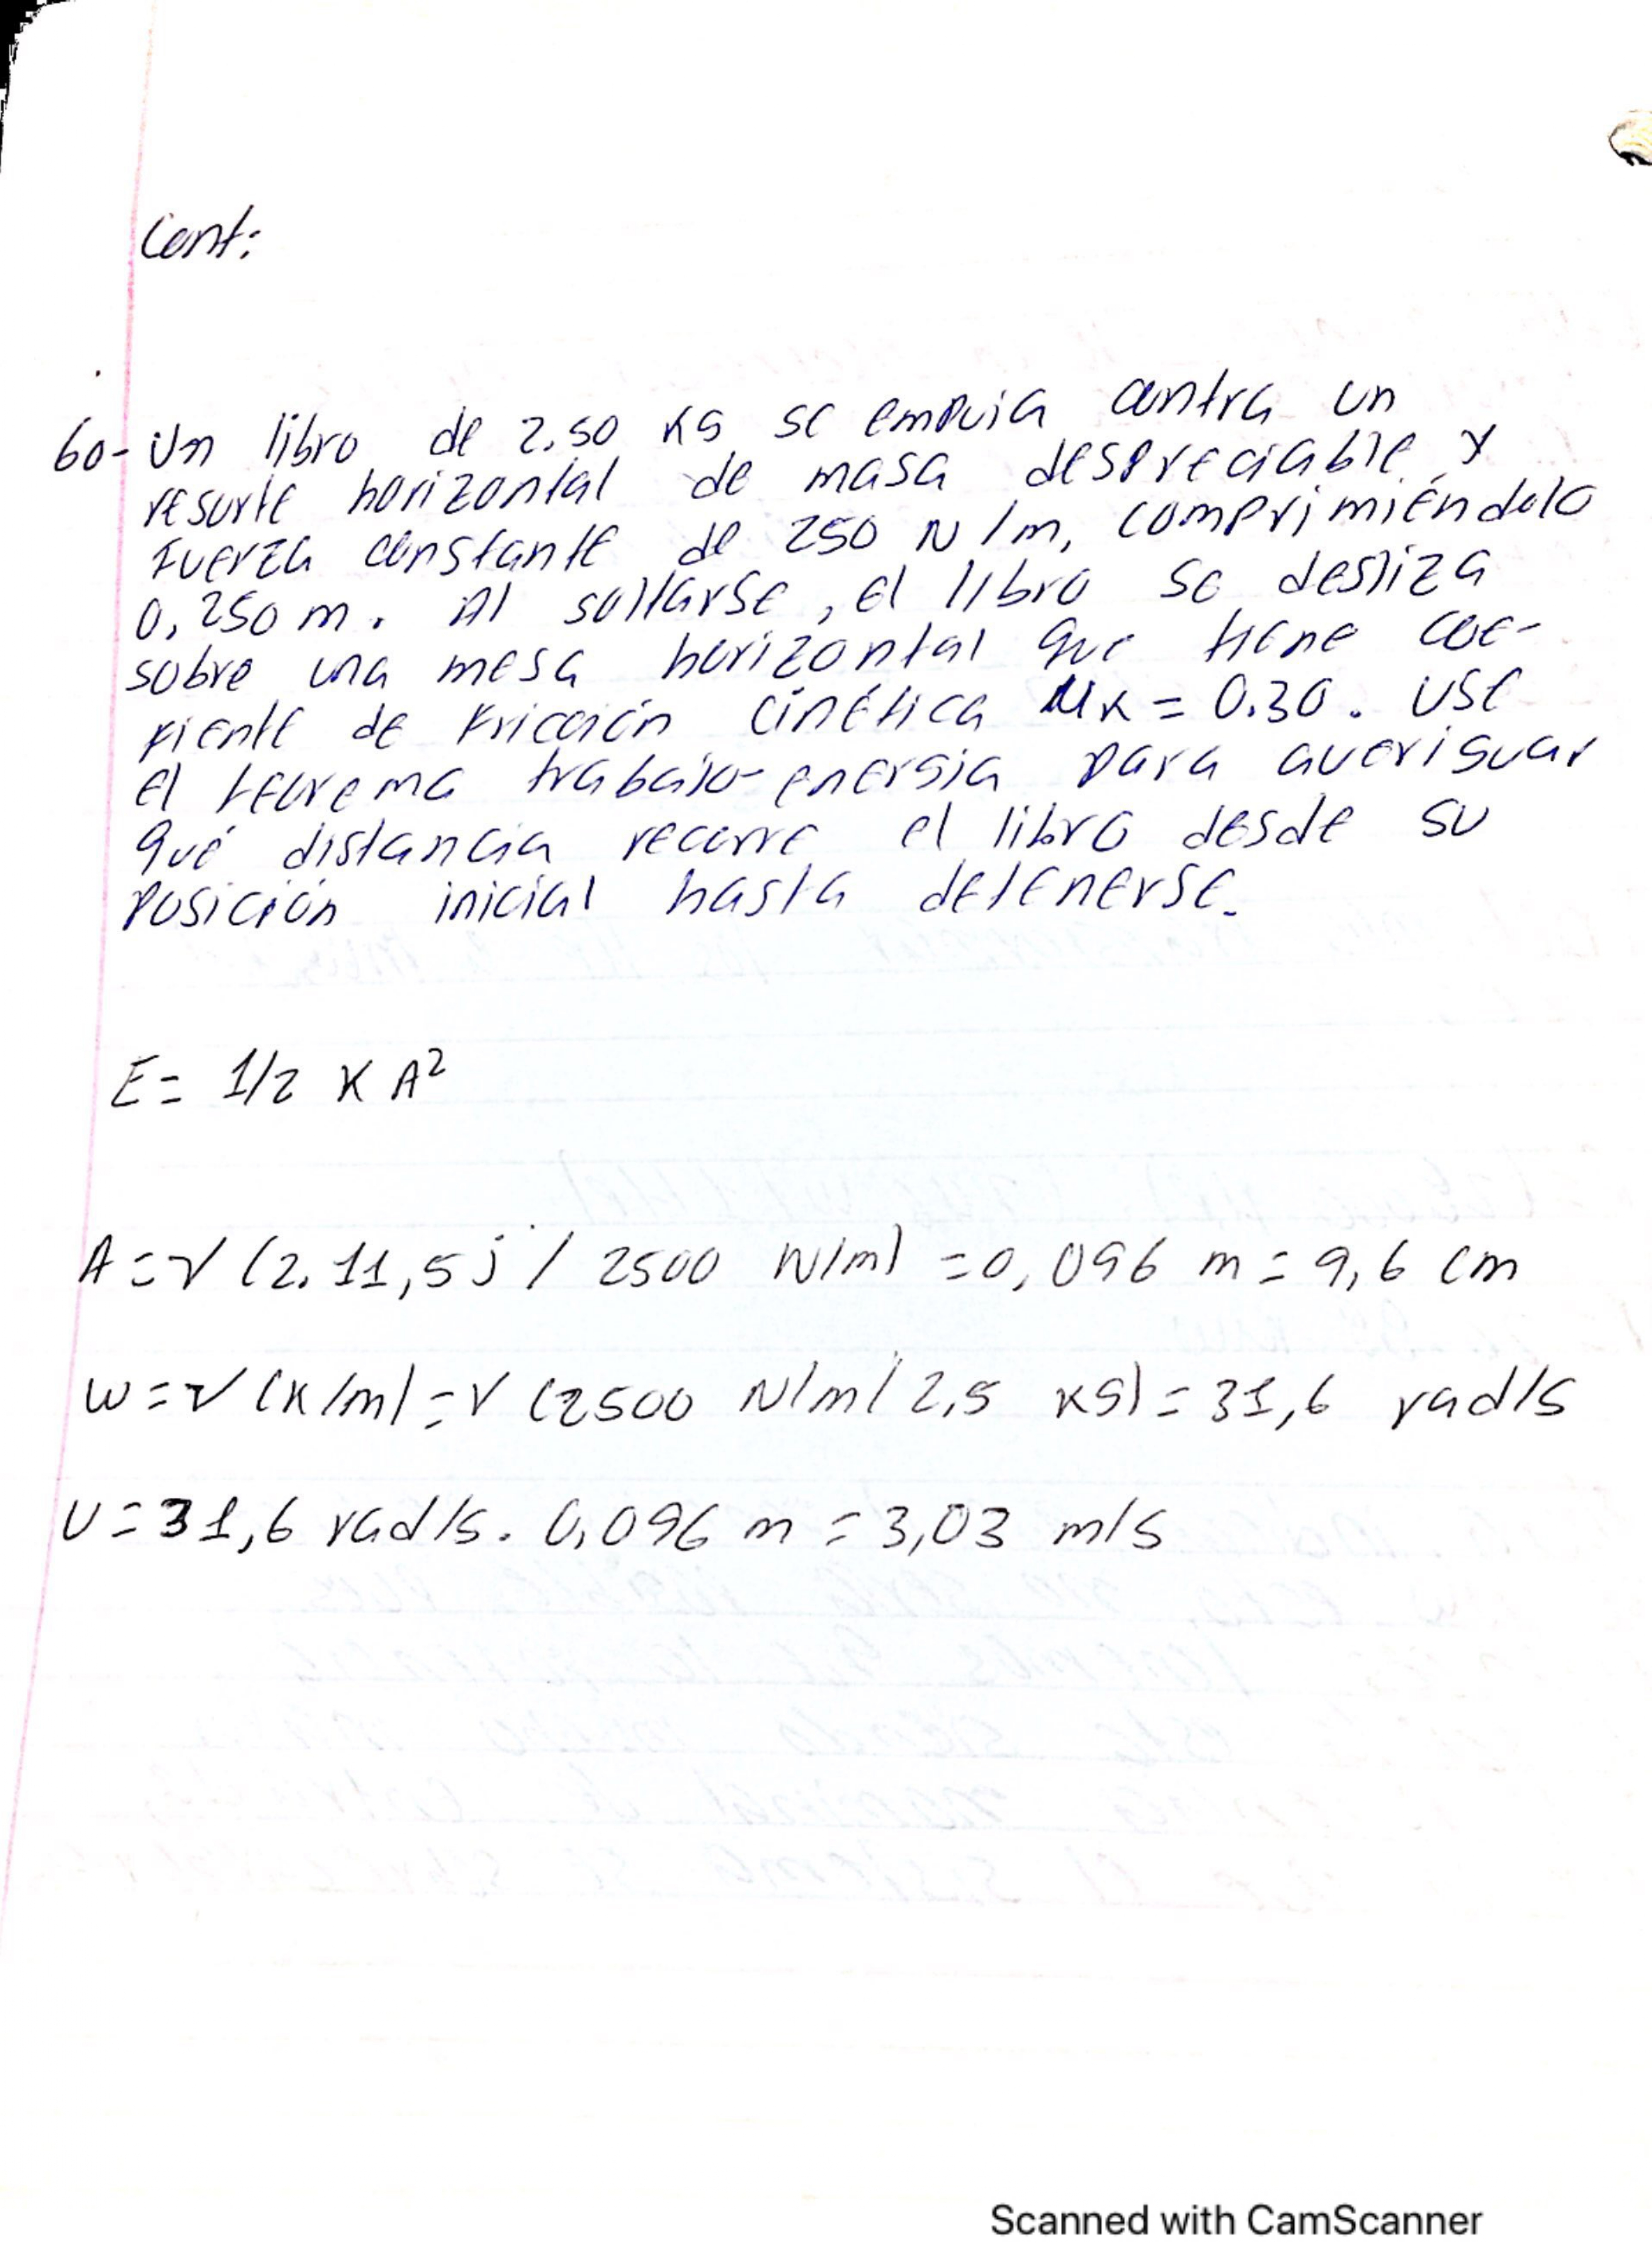 Cont:
60- Un libro de 2.50 kg se empuja contra un
resorte horizontal de masa despreciable y
fuerza constante de 250 N/m, comprimiéndolo
0,250 m. Al soltarse, el libro se desliza
sobre una mesa horizontal que tiene coe-
ficiente de fricción cinética Mk = 0.30. Use
el teorema trabajo-energia para averiguar
qué distancia recorre el libro desde su
posición inicial hasta detenerse.
E = 1/2 K A²
A = √ (2. 11,5 j / 2500 N/m) = 0,096 m = 9,6 cm
w = √ (k/m) = √ (2500 N/m / 2,5 kg) = 31,6 rad/s
U = 31,6 rad/s. 0,096 m = 3,03 m/s
Scanned with CamScanner